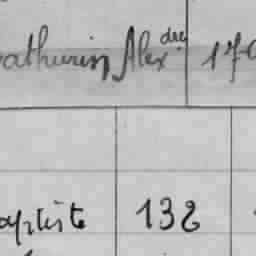 athurin Alex dre 170
aptiste 132